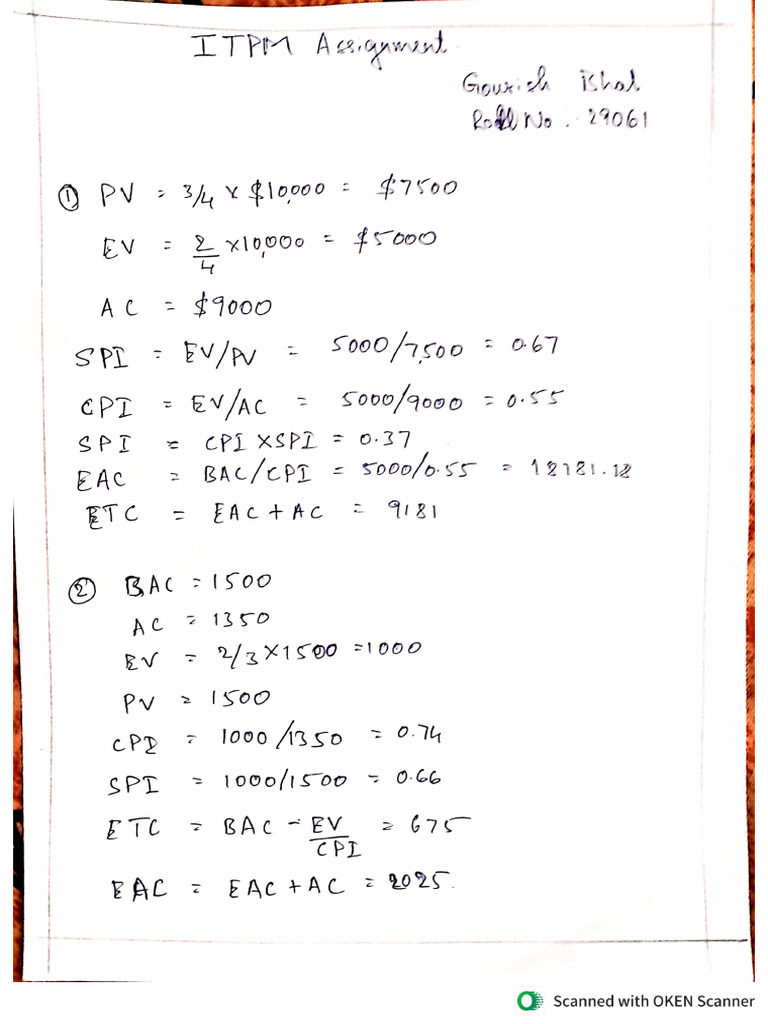 ITPM Assignment.
Gourish Bhal
Roll No. 29061
① PV = 3/4 x $10,000 = $7500
EV = 2/4 x10,000 = $5000
AC = $9000
SPI = EV/PV = 5000/7,500 = 0.67
CPI = EV/AC = 5000/9000 = 0.55
SPI = CPI X SPI = 0.37
EAC = BAC/CPI = 5000/0.55 = 18181.18
ETC = EAC + AC = 9181
② BAC = 1500
AC = 1350
EV = 2/3 X 1500 = 1000
PV = 1500
CPI = 1000/1350 = 0.74
SPI = 1000/1500 = 0.66
ETC = BAC - EV/CPI = 675
EAC = EAC + AC = 2025.
Scanned with OKEN Scanner